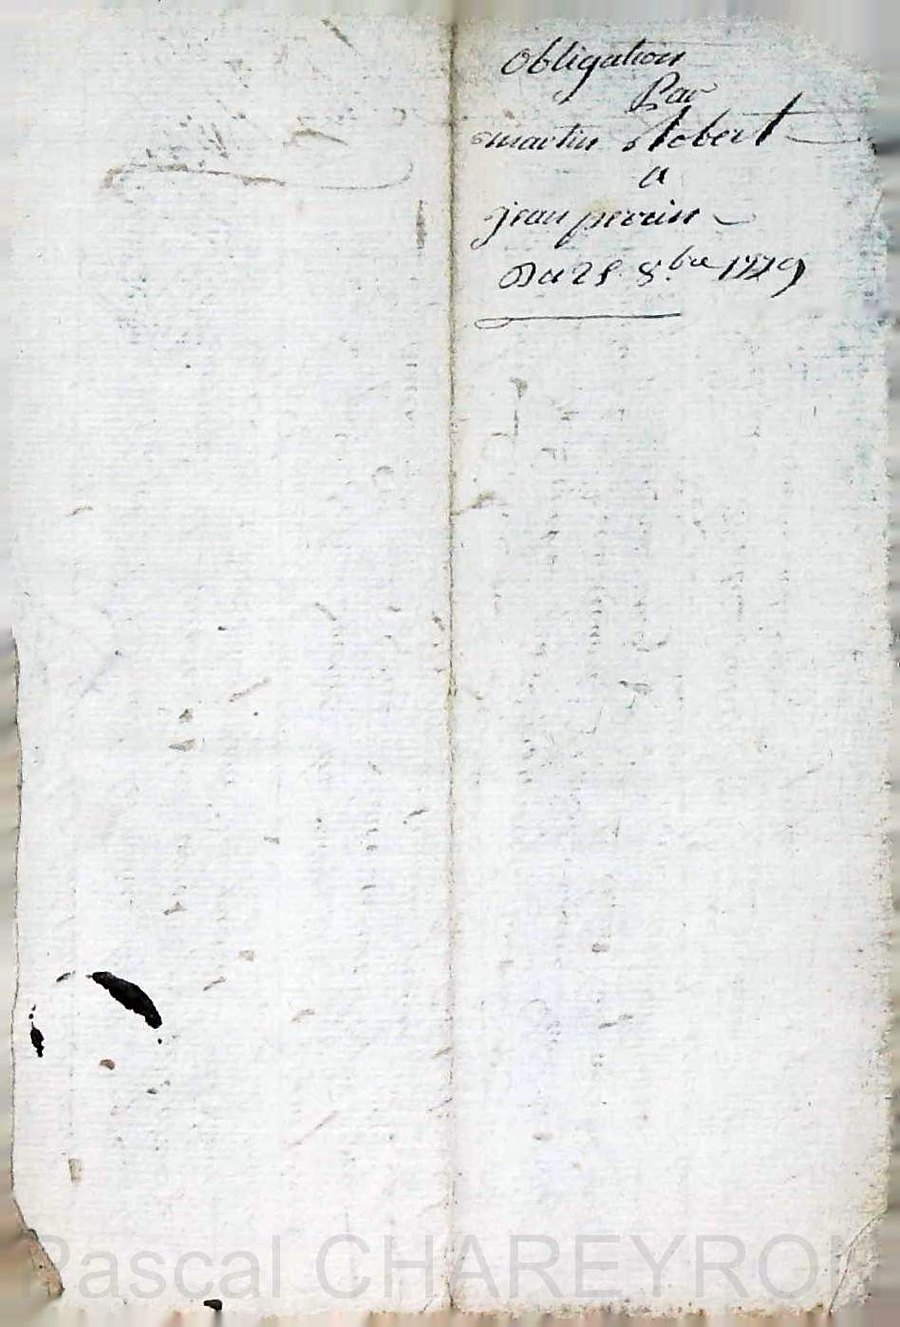 obligation
Par
martin Robert
a
jean perrin
Du 25 8.bre 1779
Pascal CHAREYRON